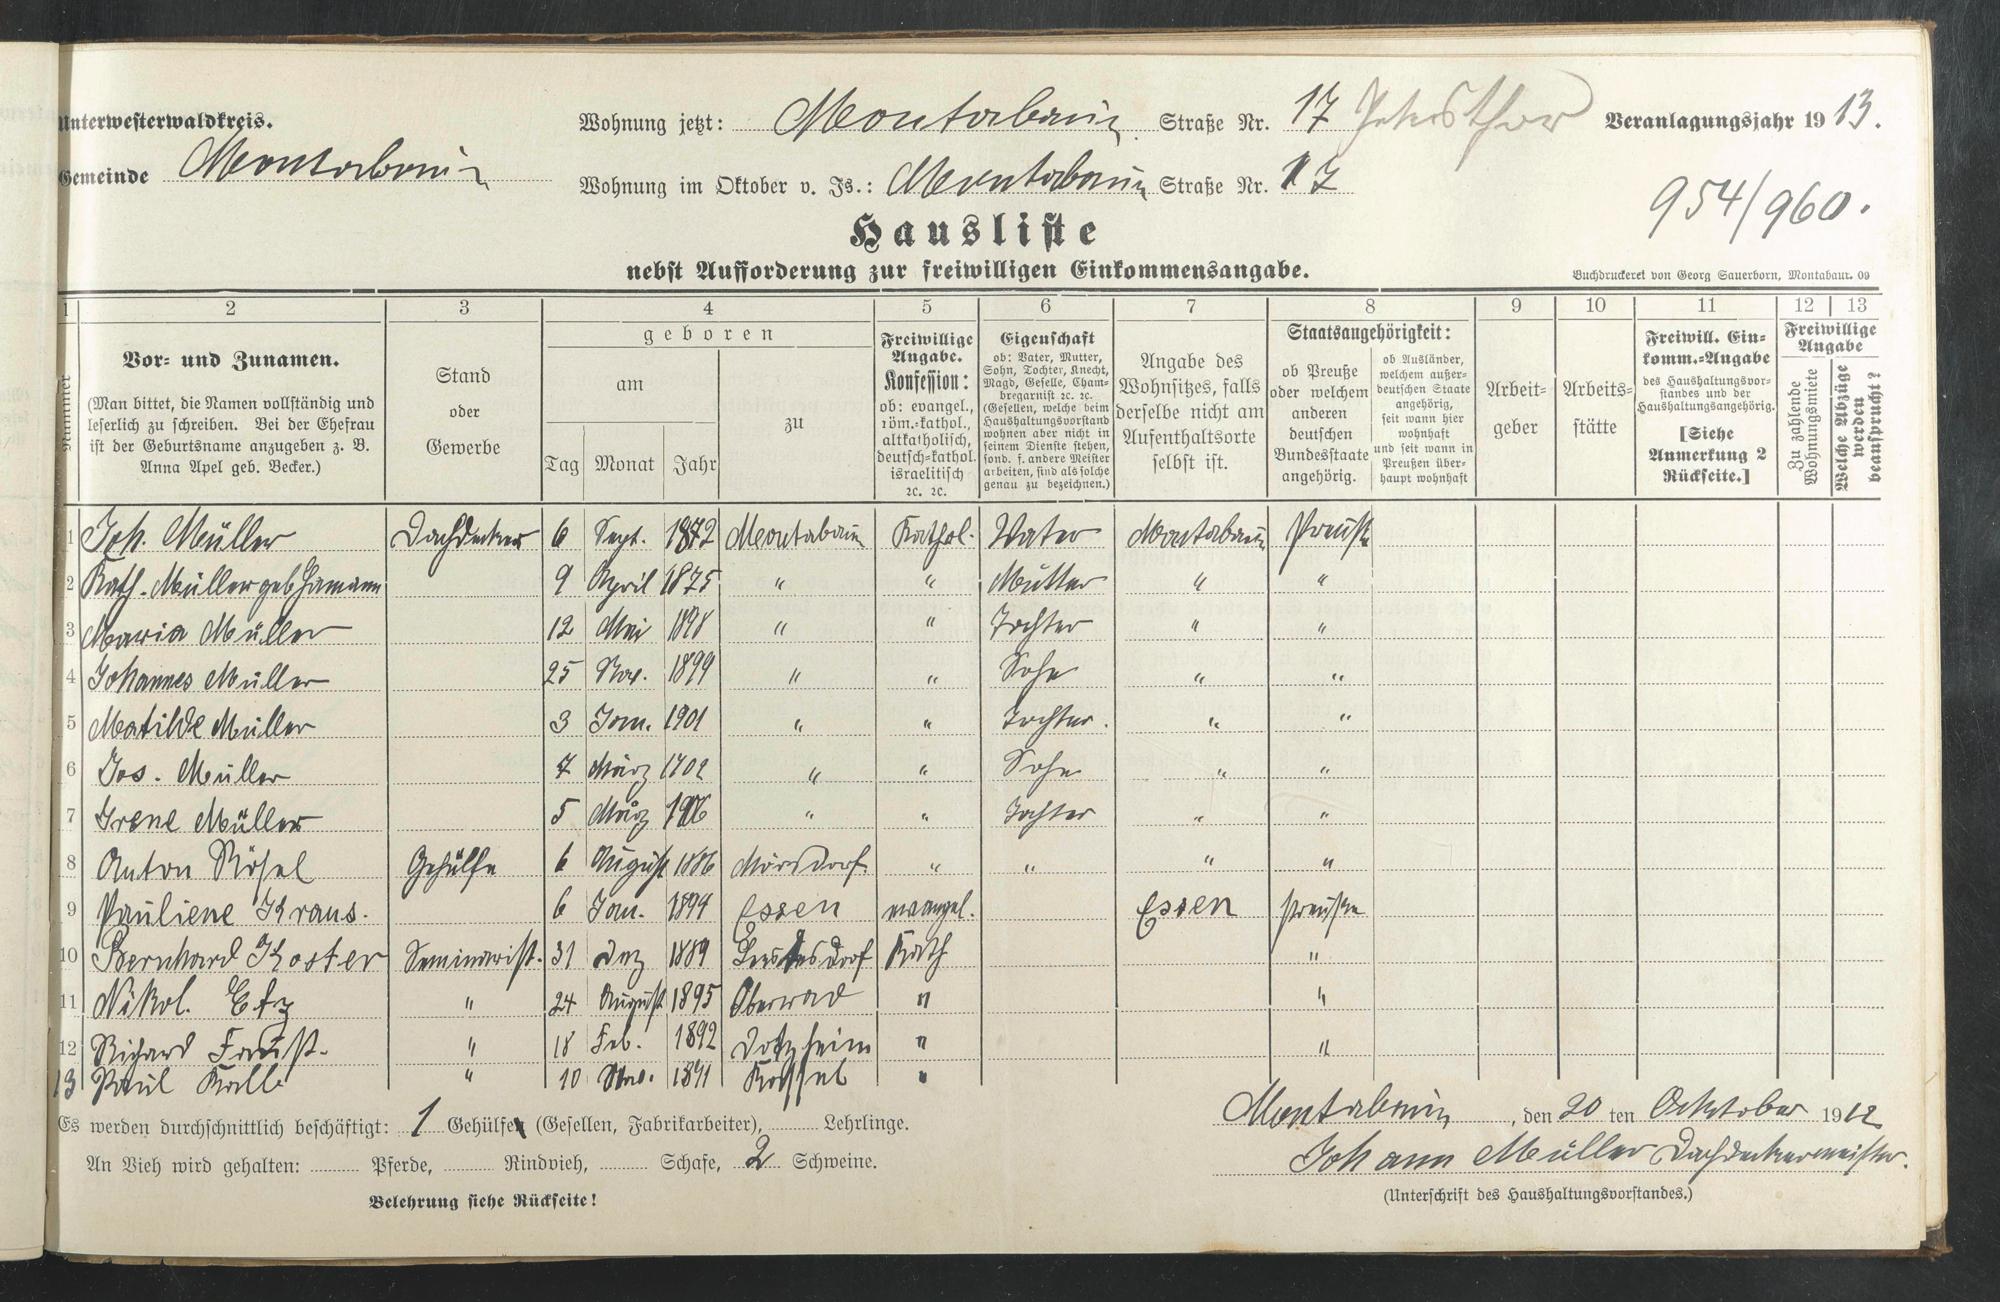 Unterwesterwaldkreis.
Wohnung jetzt: Montabaur Straße Nr. 17 Petersthor Veranlagungsjahr 1913.
Gemeinde Montabaur
Wohnung im Oktober v. Js.: Montabaur Straße Nr. 17
954/960.
Hausliste
nebst Aufforderung zur freiwilligen Einkommensangabe.
Buchdruckerei von Georg Sauerborn, Montabaur. 09
1 2 3 4 5 6 7 8 9 10 11 12 13
Nummer
Vor- und Zunamen.
(Man bittet, die Namen vollständig und
leserlich zu schreiben. Bei der Ehefrau
ist der Geburtsname anzugeben z. B.
Anna Apel geb. Becker.)
Stand
oder
Gewerbe
geboren
am
zu
Tag Monat Jahr
Freiwillige
Angabe.
Konfession:
ob: evangel.,
röm.-kathol.,
altkatholisch,
deutsch-kathol.
israelitisch
2c. 2c.
Eigenschaft
ob: Vater, Mutter,
Sohn, Tochter, Knecht,
Magd, Geselle, Cham-
bregarnist 2c. 2c.
(Gesellen, welche beim
Haushaltungsvorstand
wohnen aber nicht in
seinem Dienste stehen,
sond. f. andere Meister
arbeiten, sind als solche
genau zu bezeichnen.)
Angabe des
Wohnsitzes, falls
derselbe nicht am
Aufenthaltsorte
selbst ist.
Staatsangehörigkeit:
ob Preuße
oder welchem
anderen
deutschen
Bundesstaate
angehörig.
ob Ausländer,
welchem außer-
deutschen Staate
angehörig,
seit wann hier
wohnhaft
und seit wann in
Preußen über-
haupt wohnhaft
Arbeit-
geber
Arbeits-
stätte
Freiwill. Ein-
komm.-Angabe
des Haushaltungsvor-
standes und der
Haushaltungsangehörig.
[Siehe
Anmerkung 2
Rückseite.]
Freiwillige
Angabe
Zu zahlende
Wohnungsmiete
Welche Abzüge
werden
beansprucht?
1 Joh. Müller Dachdecker 6 Sept. 1872 Montabaur Kathol. Vater Montabaur Preuße
2 Kath. Müller geb Hamann 9 April 1875 " " Mutter " "
3 Maria Müller 12 Mai 1898 " " Tochter " "
4 Johannes Müller 25 Nov. 1899 " " Sohn " "
5 Matilde Müller 3 Jan. 1901 " " Tochter. " "
6 Jos. Müller 7 März 1902 " " Sohn " "
7 Irene Müller 5 März 1906 " " Tochter " "
8 Anton Rösel Gehülfe 6 August 1886 Mörsdorf " " " "
9 Pauliene Kraus. 6 Jan. 1894 Essen evangel. Essen Preuße
10 Bernhard Koster Seminarist. 31 Dez 1889 Kath "
11 Nikol. Etz " 24 August 1895 Oberrad " "
12 Richard Faust. " 18 Feb. 1892 Dotzheim " "
13 Paul Kalb " 10 Nov. 1891 Kassel "
Es werden durchschnittlich beschäftigt: 1 Gehülfen (Gesellen, Fabrikarbeiter), Lehrlinge.
Montabaur, den 20 ten Ocktober 1912
An Vieh wird gehalten: Pferde, Rindvieh, Schafe, 2 Schweine.
Johann Müller Dachdeckermeister.
(Unterschrift des Haushaltungsvorstandes.)
Belehrung siehe Rückseite!